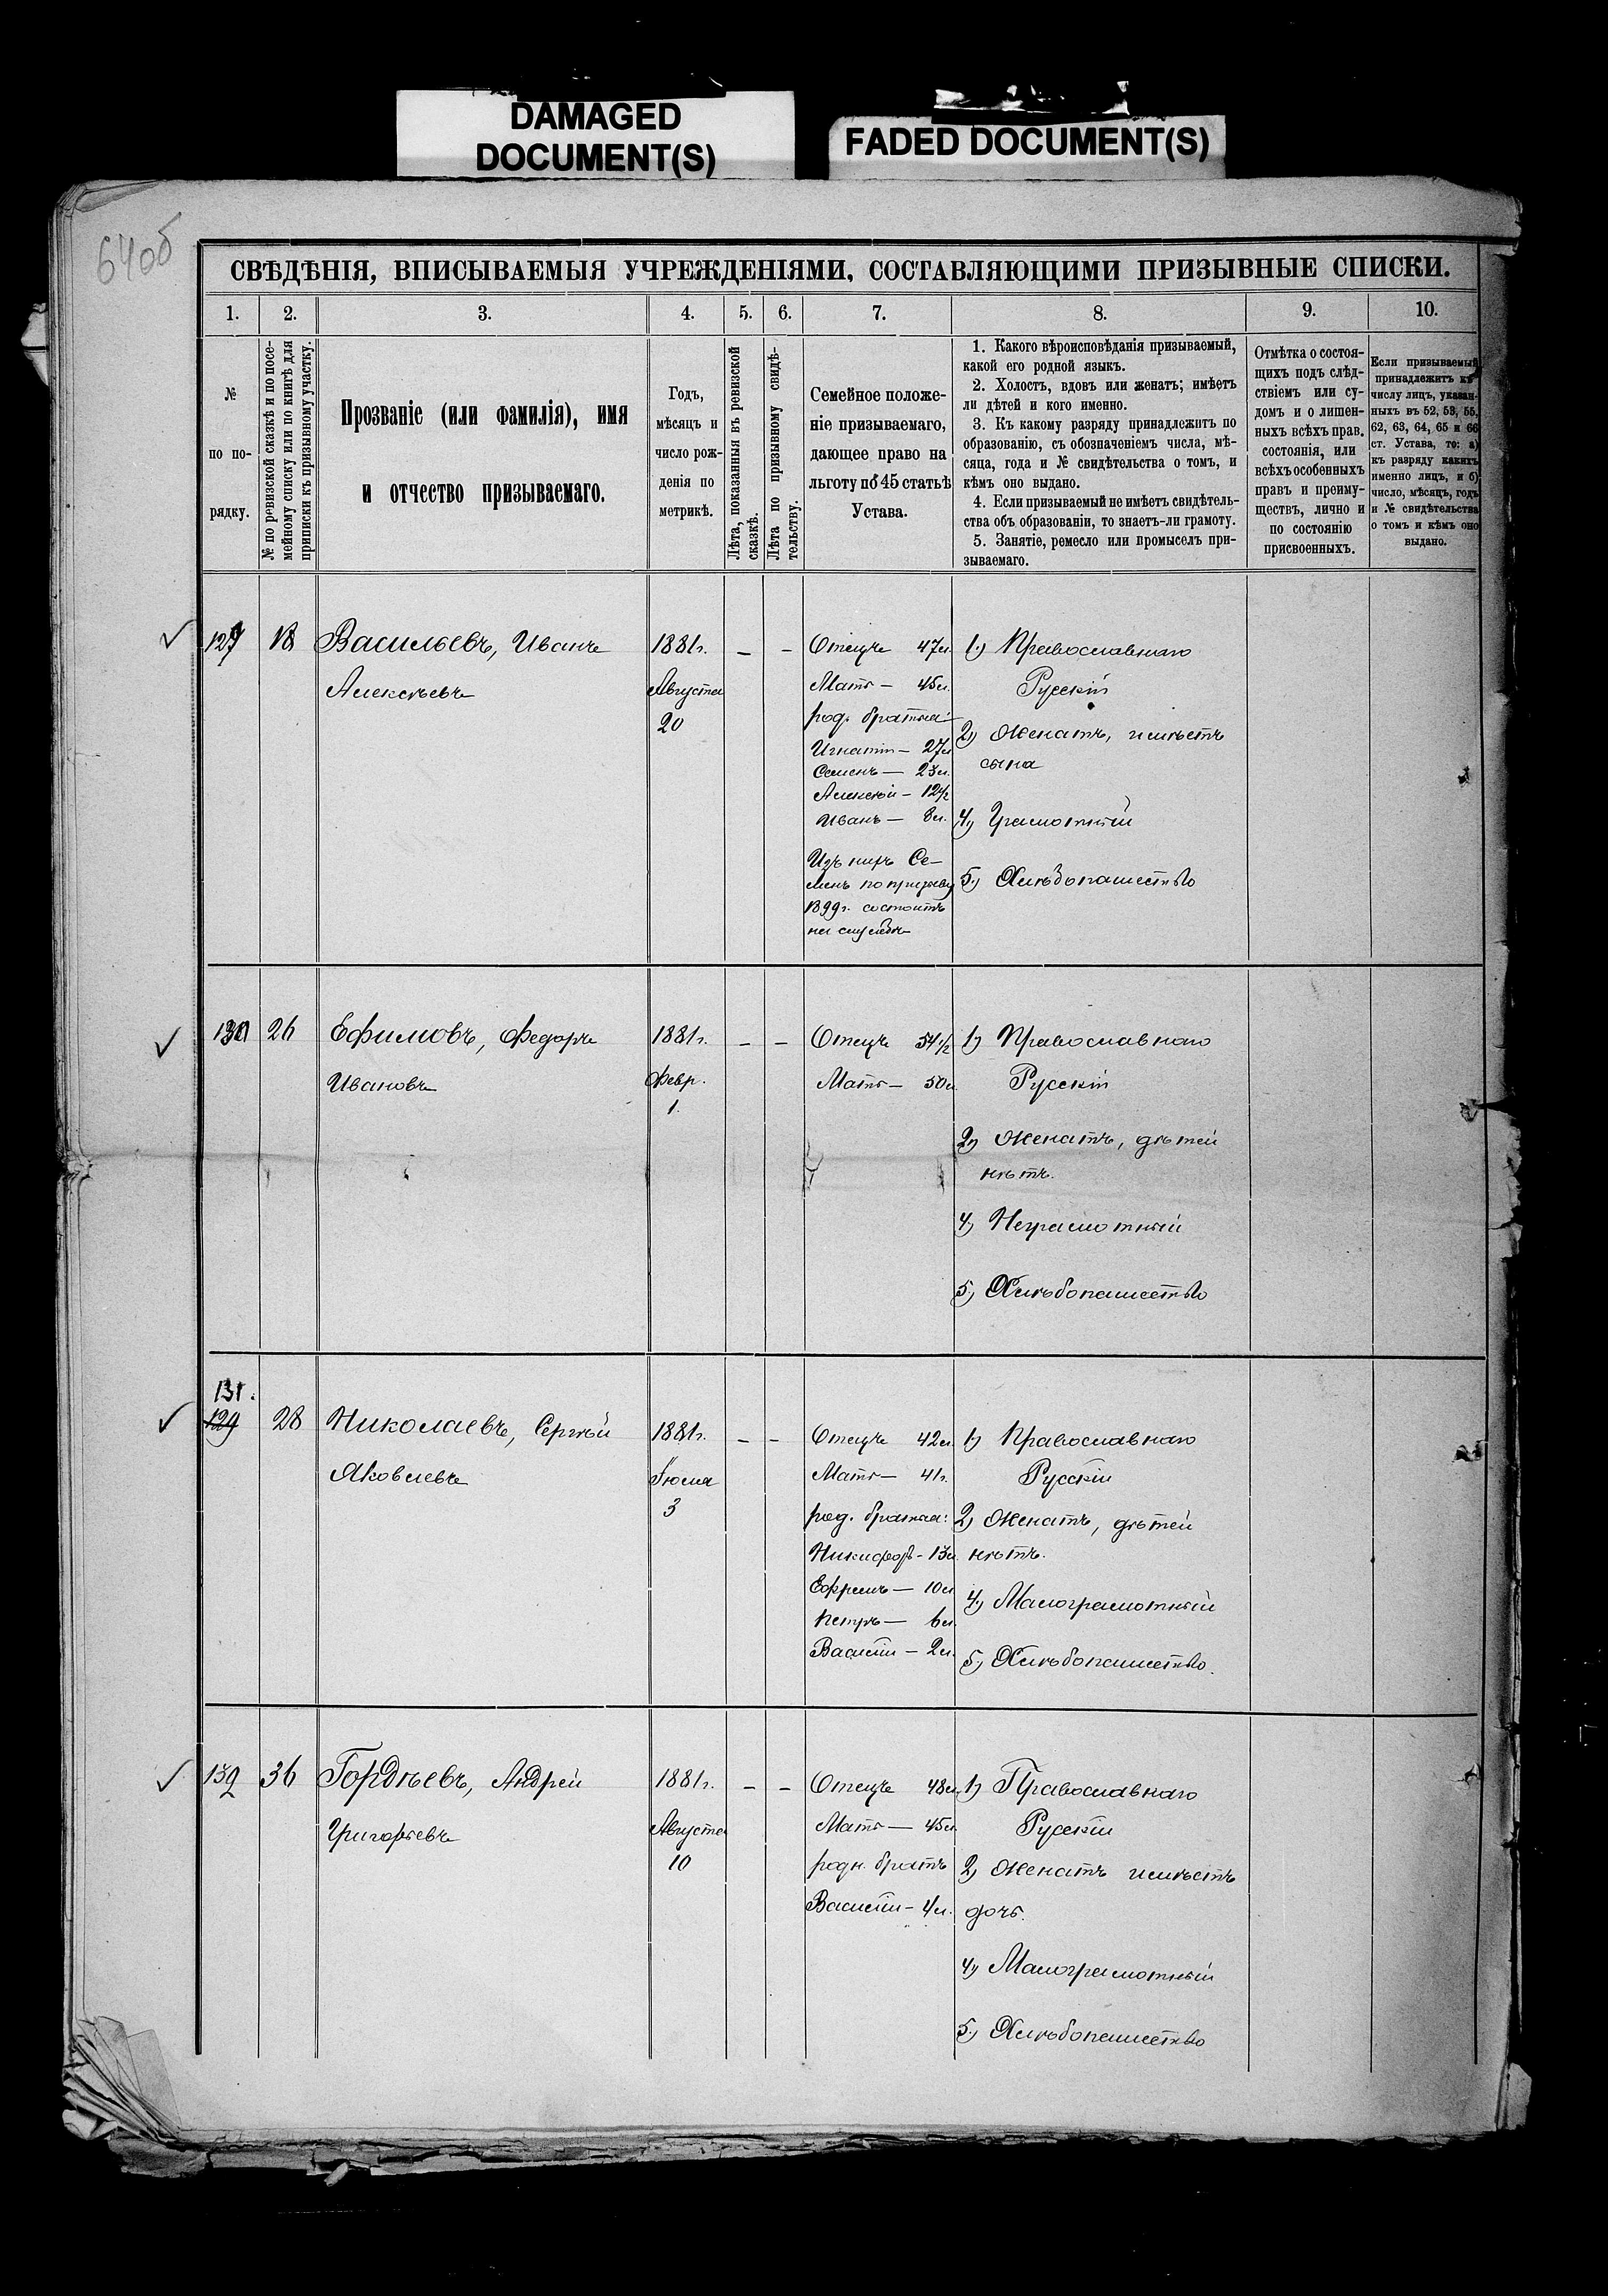 DAMAGED
DOCUMENT(S)
FADED DOCUMENT(S)
64об
СВѢДѢНІЯ, ВПИСЫВАЕМЫЯ УЧРЕЖДЕНІЯМИ, СОСТАВЛЯЮЩИМИ ПРИЗЫВНЫЕ СПИСКИ.
1. 2. 3. 4. 5. 6. 7. 8. 9. 10.
№
по по-
рядку.
№ по ревизской сказкѣ и по посе-
мейному списку или по книгѣ для
приписки къ призывному участку.
Прозваніе (или фамилія), имя
и отчество призываемаго.
Годъ,
мѣсяцъ и
число рож-
денія по
метрикѣ.
Лѣта, показанныя въ ревизской
сказкѣ.
Лѣта по призывному свидѣ-
тельству.
Семейное положе-
ніе призываемаго,
дающее право на
льготу по 45 статьѣ
Устава.
1. Какого вѣроисповѣданія призываемый,
какой его родной языкъ.
2. Холостъ, вдовъ или женатъ; имѣетъ
ли дѣтей и кого именно.
3. Къ какому разряду принадлежитъ по
образованію, съ обозначеніемъ числа, мѣ-
сяца, года и № свидѣтельства о томъ, и
кѣмъ оно выдано.
4. Если призываемый не имѣетъ свидѣтель-
ства объ образованіи, то знаетъ-ли грамоту.
5. Занятіе, ремесло или промыселъ при-
зываемаго.
Отмѣтка о состоя-
щихъ подъ слѣд-
ствіемъ или су-
домъ и о лишен-
ныхъ всѣхъ прав.
состоянія, или
всѣхъ особенныхъ
правъ и преиму-
ществъ, лично и
по состоянію
присвоенныхъ.
Если призываемый
принадлежитъ къ
числу лицъ, указан-
ныхъ въ 52, 53, 55,
62, 63, 64, 65 и 66
ст. Устава, то: а)
къ разряду какихъ
именно лицъ, и б)
число, мѣсяцъ, годъ
и № свидѣтельства
о томъ и кѣмъ оно
выдано.
18
Васильевъ, Иванъ
Алексѣевъ
1881г.
Августа
20
— —
Отецъ 47л.
Мать — 45л.
род. братья:
Игнатій — 27л
Семенъ — 23л.
Алексѣй — 12 1/2
Иванъ — 8л.
Изъ нихъ Се-
менъ по призыву
1899г. состоитъ
на службѣ
1) Православнаго
Русскій
2) Женатъ, имѣетъ
сына
4) Грамотный
5) Хлѣбопашество
130 26
Ефимовъ, Федоръ
Ивановъ
1881г.
Февр.
1.
— —
Отецъ 54 1/2
Мать — 50л
1) Православнаго
Русскій
2) Женатъ, дѣтей
нѣтъ.
4) Неграмотный
5) Хлѣбопашество
131.
129 28
Николаевъ, Сергѣй
Яковлевъ
1881г.
Іюля
3
— —
Отецъ 42л.
Мать — 41г.
род. братья:
Никифоръ — 13л.
Ефремъ — 10л
Петръ — 6л.
Василій — 2л.
1) Православнаго
Русскій
2) Женатъ, дѣтей
нѣтъ.
4) Малограмотный
5) Хлѣбопашество.
132 36
Гордѣевъ, Андрей
Григорьевъ
1881г.
Августа
10
— —
Отецъ 48л.
Мать — 45л
родн. братъ
Василій — 4л.
1) Православнаго
Русскій
2) Женатъ имѣетъ
дочь.
4) Малограмотный
5) Хлѣбопашество